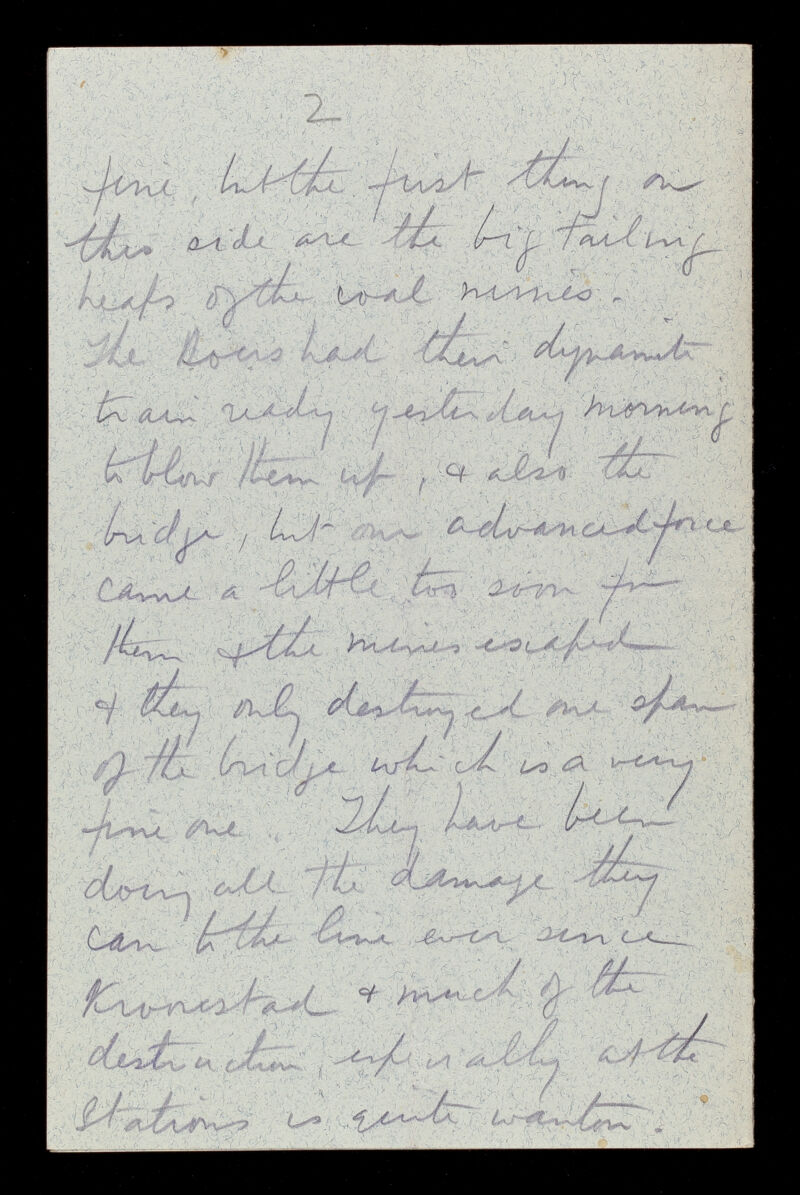 2
fine, but the first thing on
this side are the big tailing
heaps of the coal mines.
The Boers had their dynamite
train ready yesterday morning
to blow them up, & also the
bridge, but our advanced force
came a little too soon for
them & the mines escaped
& they only destroyed one span
of the bridge which is a very
fine one. They have been
doing all the damage they
can to the line ever since
Kronestad & much of the
destruction, especially at the
Stations is quite wanton.